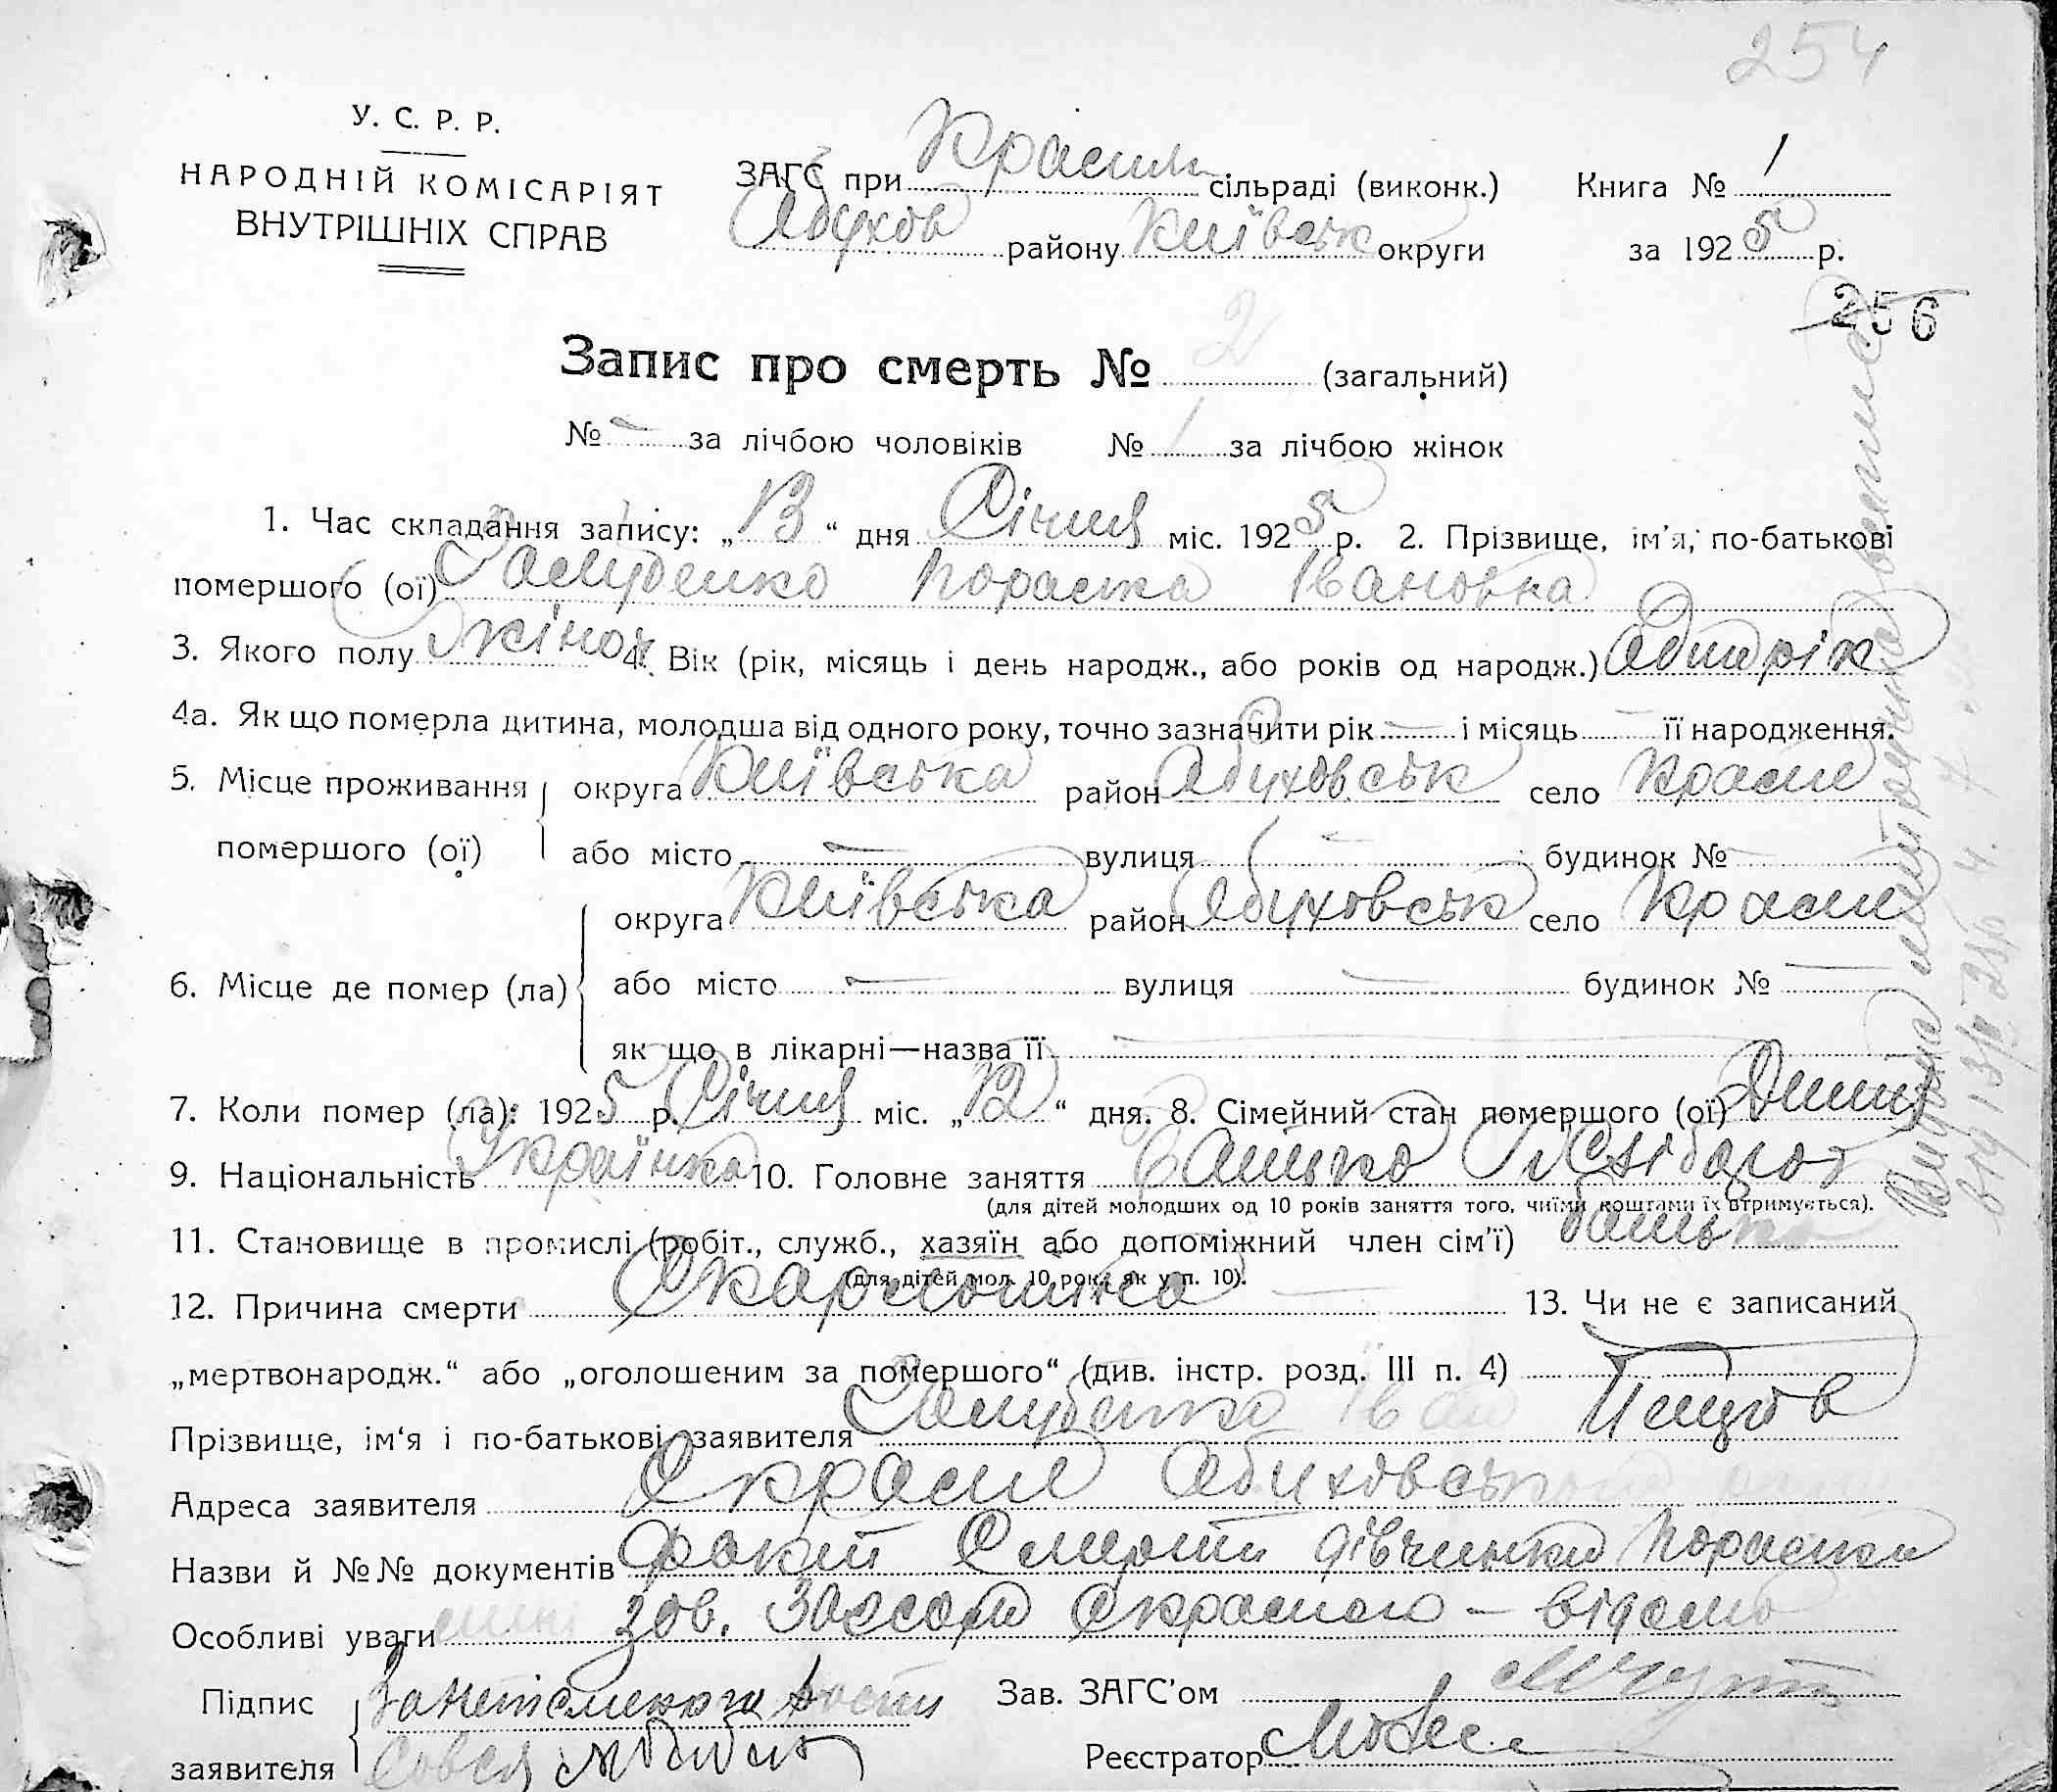 254
У. С. Р. Р.
НАРОДНІЙ КОМІСАРІЯТ
ВНУТРІШНІХ СПРАВ
ЗАГС при Красин сільраді (виконк.)
Обухов району Київськ округи
Книга № 1
за 1925 р.
256
Запис про смерть № 2 (загальний)
№ — за лічбою чоловіків № 1 за лічбою жінок
1. Час складання запису: „13“ дня Січня міс. 1925 р. 2. Прізвище, ім'я, по-батькові
помершого (ої) Параска Івановна
3. Якого полу жіноч 4. Вік (рік, місяць і день народж., або років од народж.) Один рік
4а. Як що померла дитина, молодша від одного року, точно зазначити рік — і місяць — її народження.
5. Місце проживання округа Київська район Обуховськ село Красне
помершого (ої) або місто — вулиця — будинок № —
округа Київська район Обуховськ село Красне
6. Місце де помер (ла) або місто — вулиця — будинок № —
як що в лікарні—назва її —
7. Коли помер (ла): 1925 р. Січня міс. „12“ дня. 8. Сімейний стан помершого (ої)
9. Національність Українка 10. Головне заняття Батько Хлібороб
(для дітей молодших од 10 років заняття того, чиїми коштами їх втримується).
11. Становище в промислі (робіт., служб., хазяїн або допоміжний член сім'ї) батько
(для дітей мол. 10 рок. як у п. 10).
12. Причина смерти Скарлатина — 13. Чи не є записаний
„мертвонародж.“ або „оголошеним за помершого“ (див. інстр. розд. III п. 4) —
Прізвище, ім'я і по-батькові заявителя Іван
Адреса заявителя с Красне Обуховського
Назви й №№ документів факт Смерти дівчинки Параски
Особливі уваги мені зав. Загсом с Красного — відомо
Підпис
заявителя
Зав. ЗАГС'ом
Реєстратор